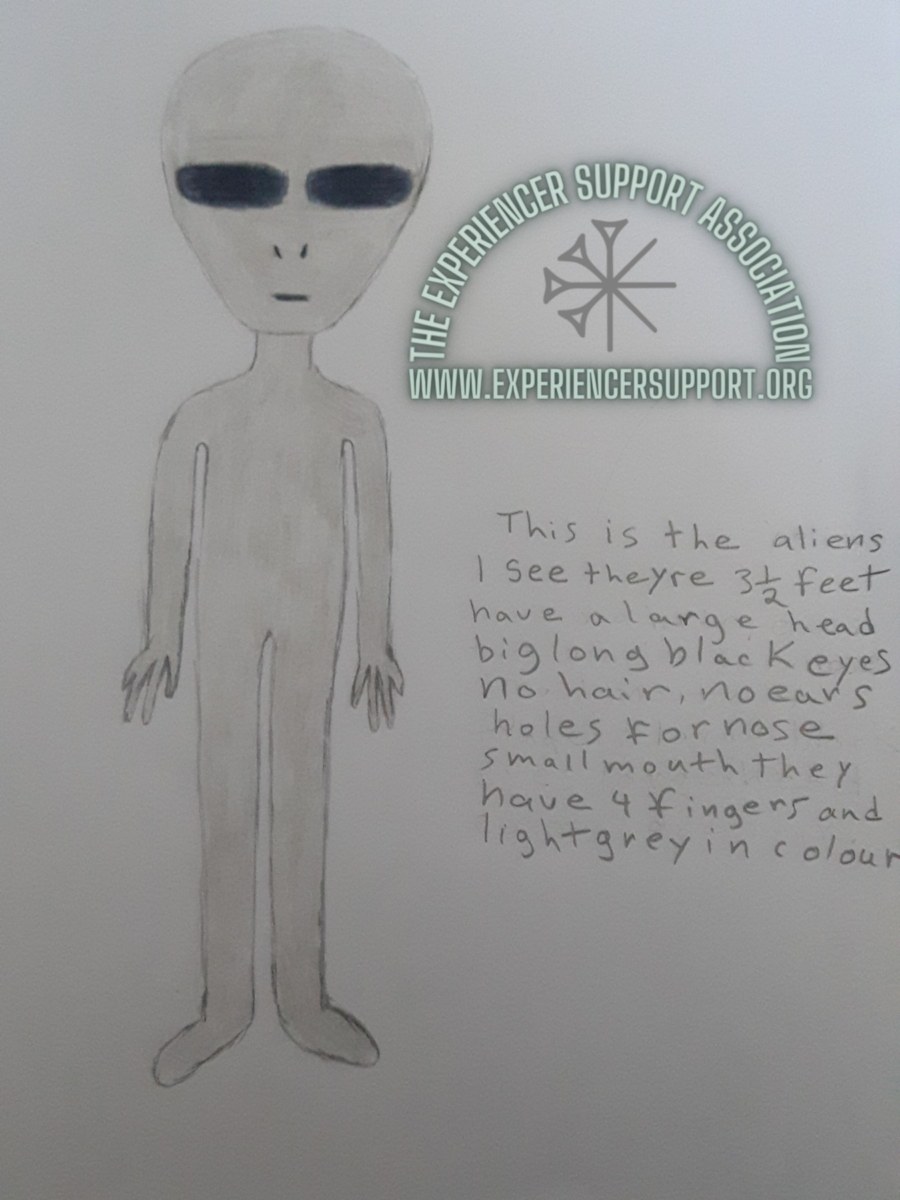 THE EXPERIENCER SUPPORT ASSOCIATION
WWW.EXPERIENCERSUPPORT.ORG
This is the aliens
I see theyre 3½ feet
have a large head
big long black eyes
no hair, no ears
holes for nose
small mouth they
have 4 fingers and
light grey in colour